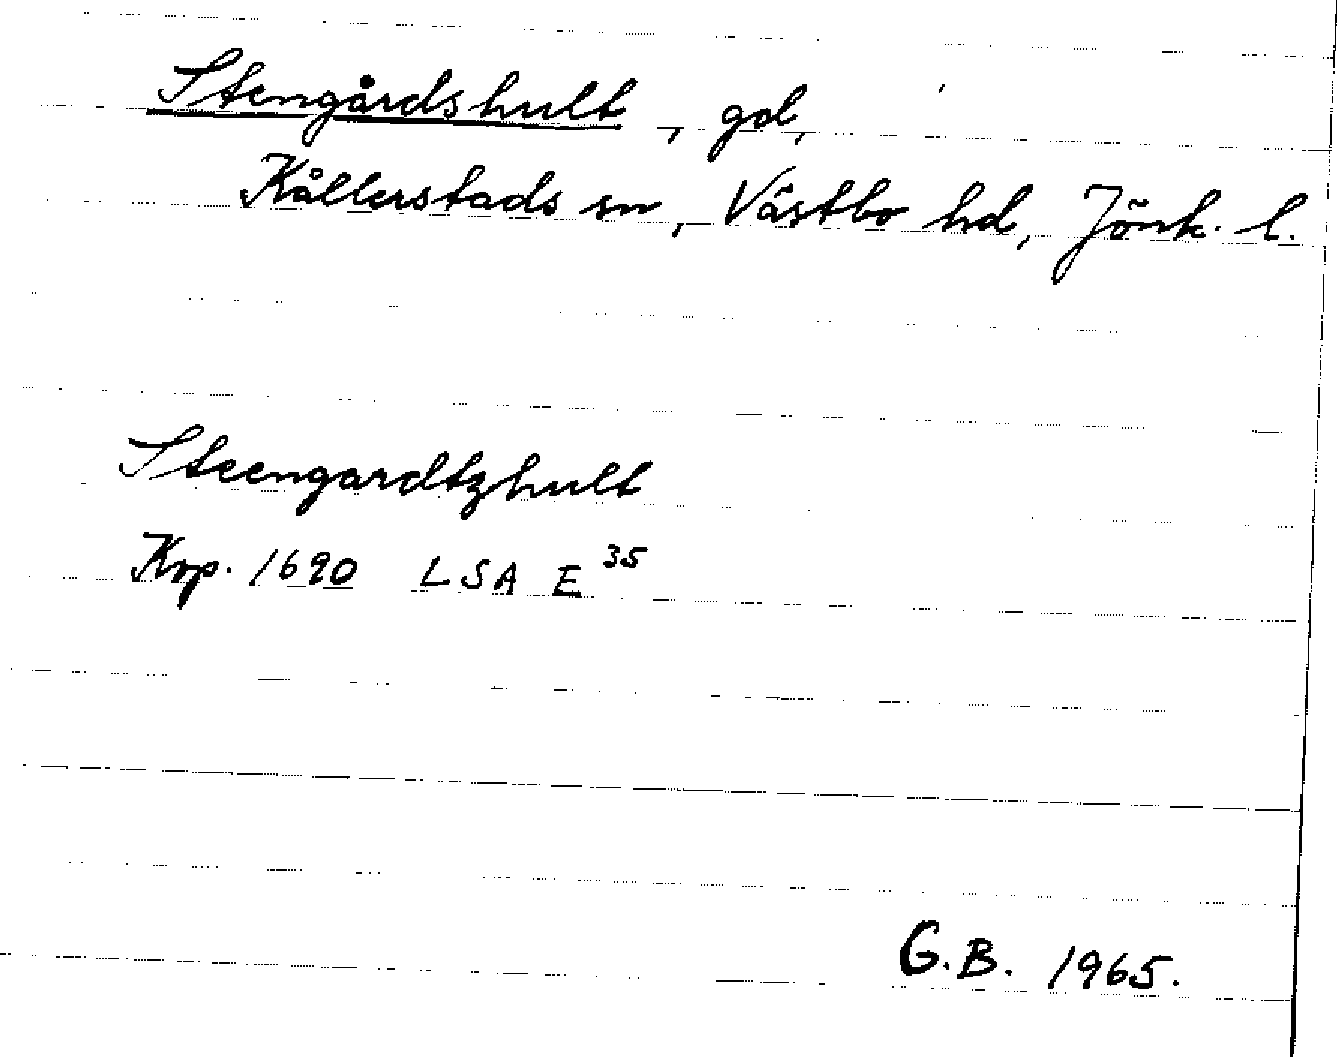 Stengårdshult, gd,
Kållerstads sn, Västbo hd, Jönk. l.
Steengardtzhult
Krp. 1690 LSA E 35
G.B. 1965.